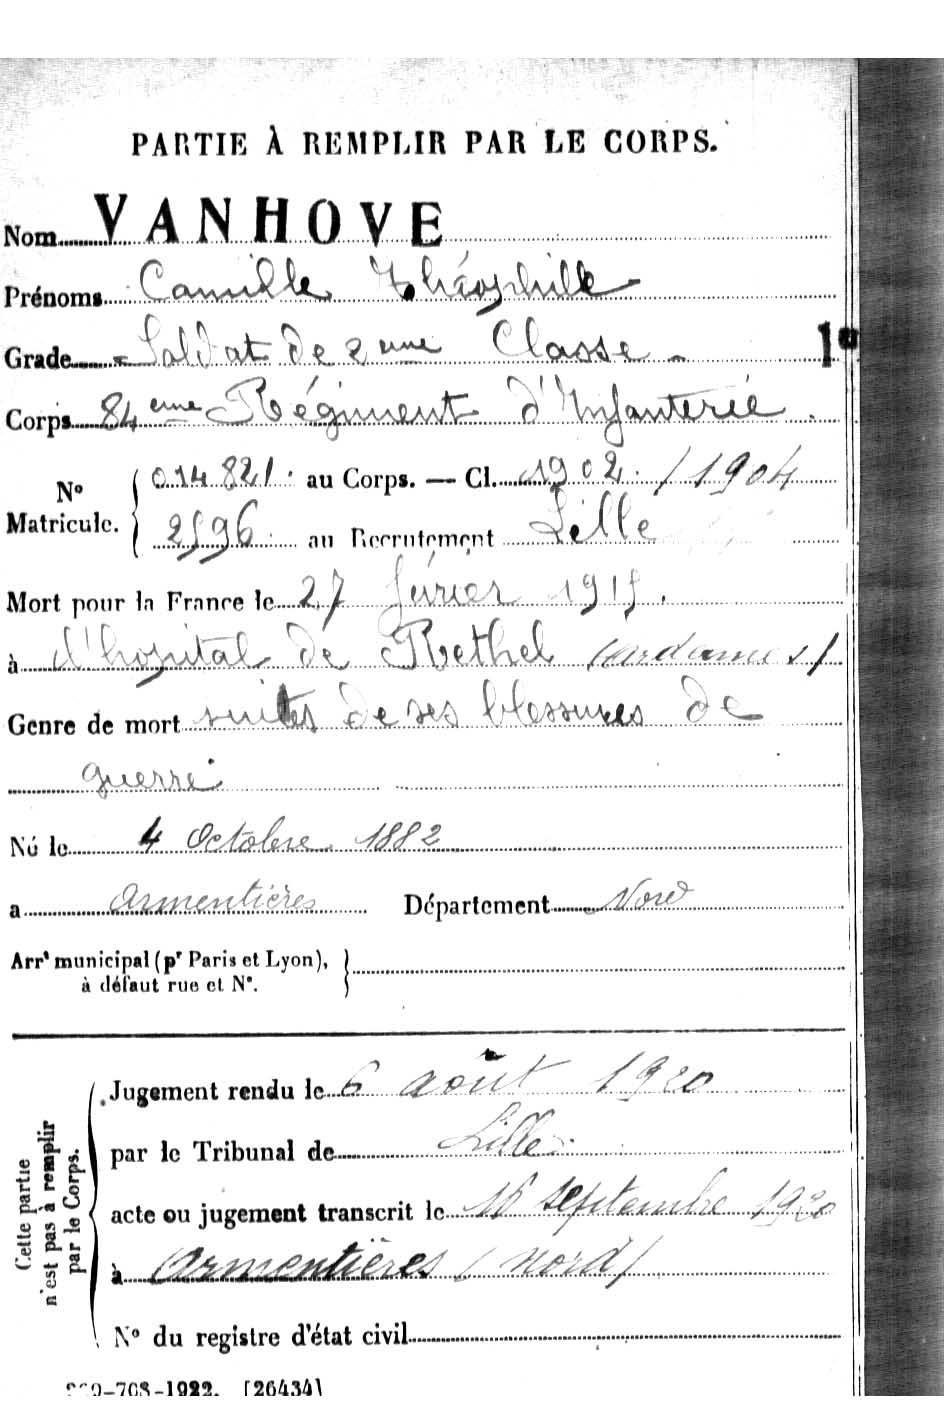 PARTIE À REMPLIR PAR LE CORPS.
Nom VANHOVE
Prénoms Camille Théophile
Grade Soldat de 2eme Classe
Corps 84eme Régiment d'Infanterie
No Matricule. 014821 au Corps. — Cl. 1902 / 1904
2596 au Recrutement Lille
Mort pour la France le 27 février 1915.
à l'hopital de Rethel (ardennes)
Genre de mort suites de ses blessures de
guerre
Né le 4 Octobre 1882
a Armentières Département Nord
Arrt municipal (pr Paris et Lyon),
à défaut rue et N°.
Cette partie n'est pas à remplir par le Corps.
Jugement rendu le 6 août 1920
par le Tribunal de Lille
acte ou jugement transcrit le 16 septembre 1920
à Armentières (Nord)
N° du registre d'état civil
-708-1922. [26434]